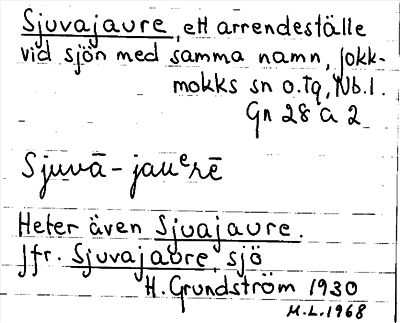 Sjuvajaure, ett arrendeställe
vid sjön med samma namn, Jokk-
mokks sn o. tg, Nb. l.
Gn 28 a 2
Sjuvā-jauᵉrē
Heter även Sjuajaure.
Jfr. Sjuvajaure, sjö
H. Grundström 1930
M.L. 1968